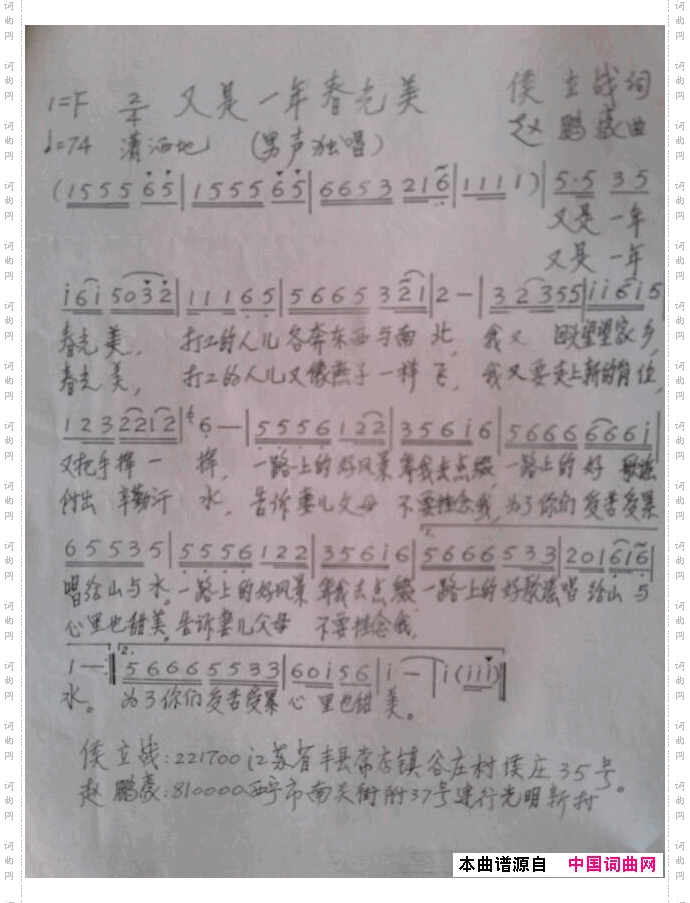 1=F 2/4 又是一年春光美 侯立战词
♩=74 潇洒地 (男声独唱) 赵鹏豪曲
(1555 65|1555 65|6653 216|1111)|5·5 35
又是一年
又是一年
i6i 5032|11165|5665 321|2-|32355|ii6i5
春光美, 打工的人儿各奔东西与南北, 我又回头望望家乡,
春光美, 打工的人儿又像燕子一样飞, 我又要走上新的岗位,
123 2212|6-|5556 122|356i6|5666 666i
又把手挥一挥, 一路上的好风景等我去点缀, 一路上的好歌谣
付出辛勤汗水, 告诉妻儿父母不要挂念我, 为了你们受苦受累
65535|5556 122|356i6|5666 533|201616|
唱给山与水。一路上的好风景等我去点缀 一路上的好歌谣唱给山与
心里也甜美。告诉妻儿父母不要挂念我,
1-:|2.5666 5533|60i56|i-|i(iii)|
水。 为了你们受苦受累心里也甜美。
侯立战:221700江苏省丰县常店镇谷庄村侯庄35号。
赵鹏豪:810000西宁市南关街附37号建行光明新村
本曲谱源自 中国词曲网
词曲网